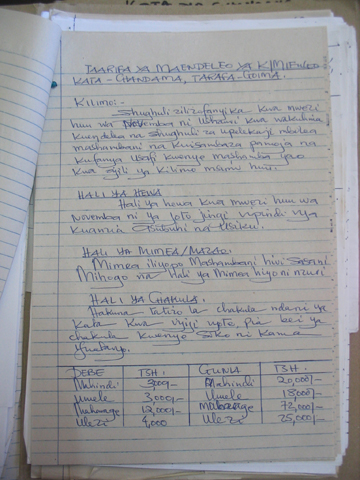 TAARIFA YA MAENDELEO YA KIMIENDO
KATA - GHANDAMA, TARAFA - GOIMA.
KILIMO:-
Shughuli zilizofanyika kwa mwezi
huu wa Novemba ni Uhamasi kwa wakulima
kuendelea na Shughuli za upelekaji mbolea
mashambani na kuisambaza pamoja na
kufanya Usafi kwenye mashamba yao
kwa ajili ya kilimo msimu huu.
HALI YA HEWA
Hali ya hewa kwa mwezi huu wa
Novemba ni ya joto vipindi vya
kuanzia na Usiku.
HALI YA MIMEA/MAZAO.
Mimea iliyopo Mashambani hivi Sasa ni
Mihogo na Hali ya Mimea hiyo ni nzuri
HALI YA CHAKULA.
Hakuna tatizo la chakula ndani ya
Kata kwa vijiji vyote, pia bei ya
chakula kwenye Soko ni kama
ifuatavyo.
DEBE TSH: GUNIA TSH:
Mahindi Mahindi 20,000/-
Uwele 3,000/- Uwele 18,000/-
Maharage 12,000/- Maharage 72,000/-
Ulezi 4,000 Ulezi 25,000/-